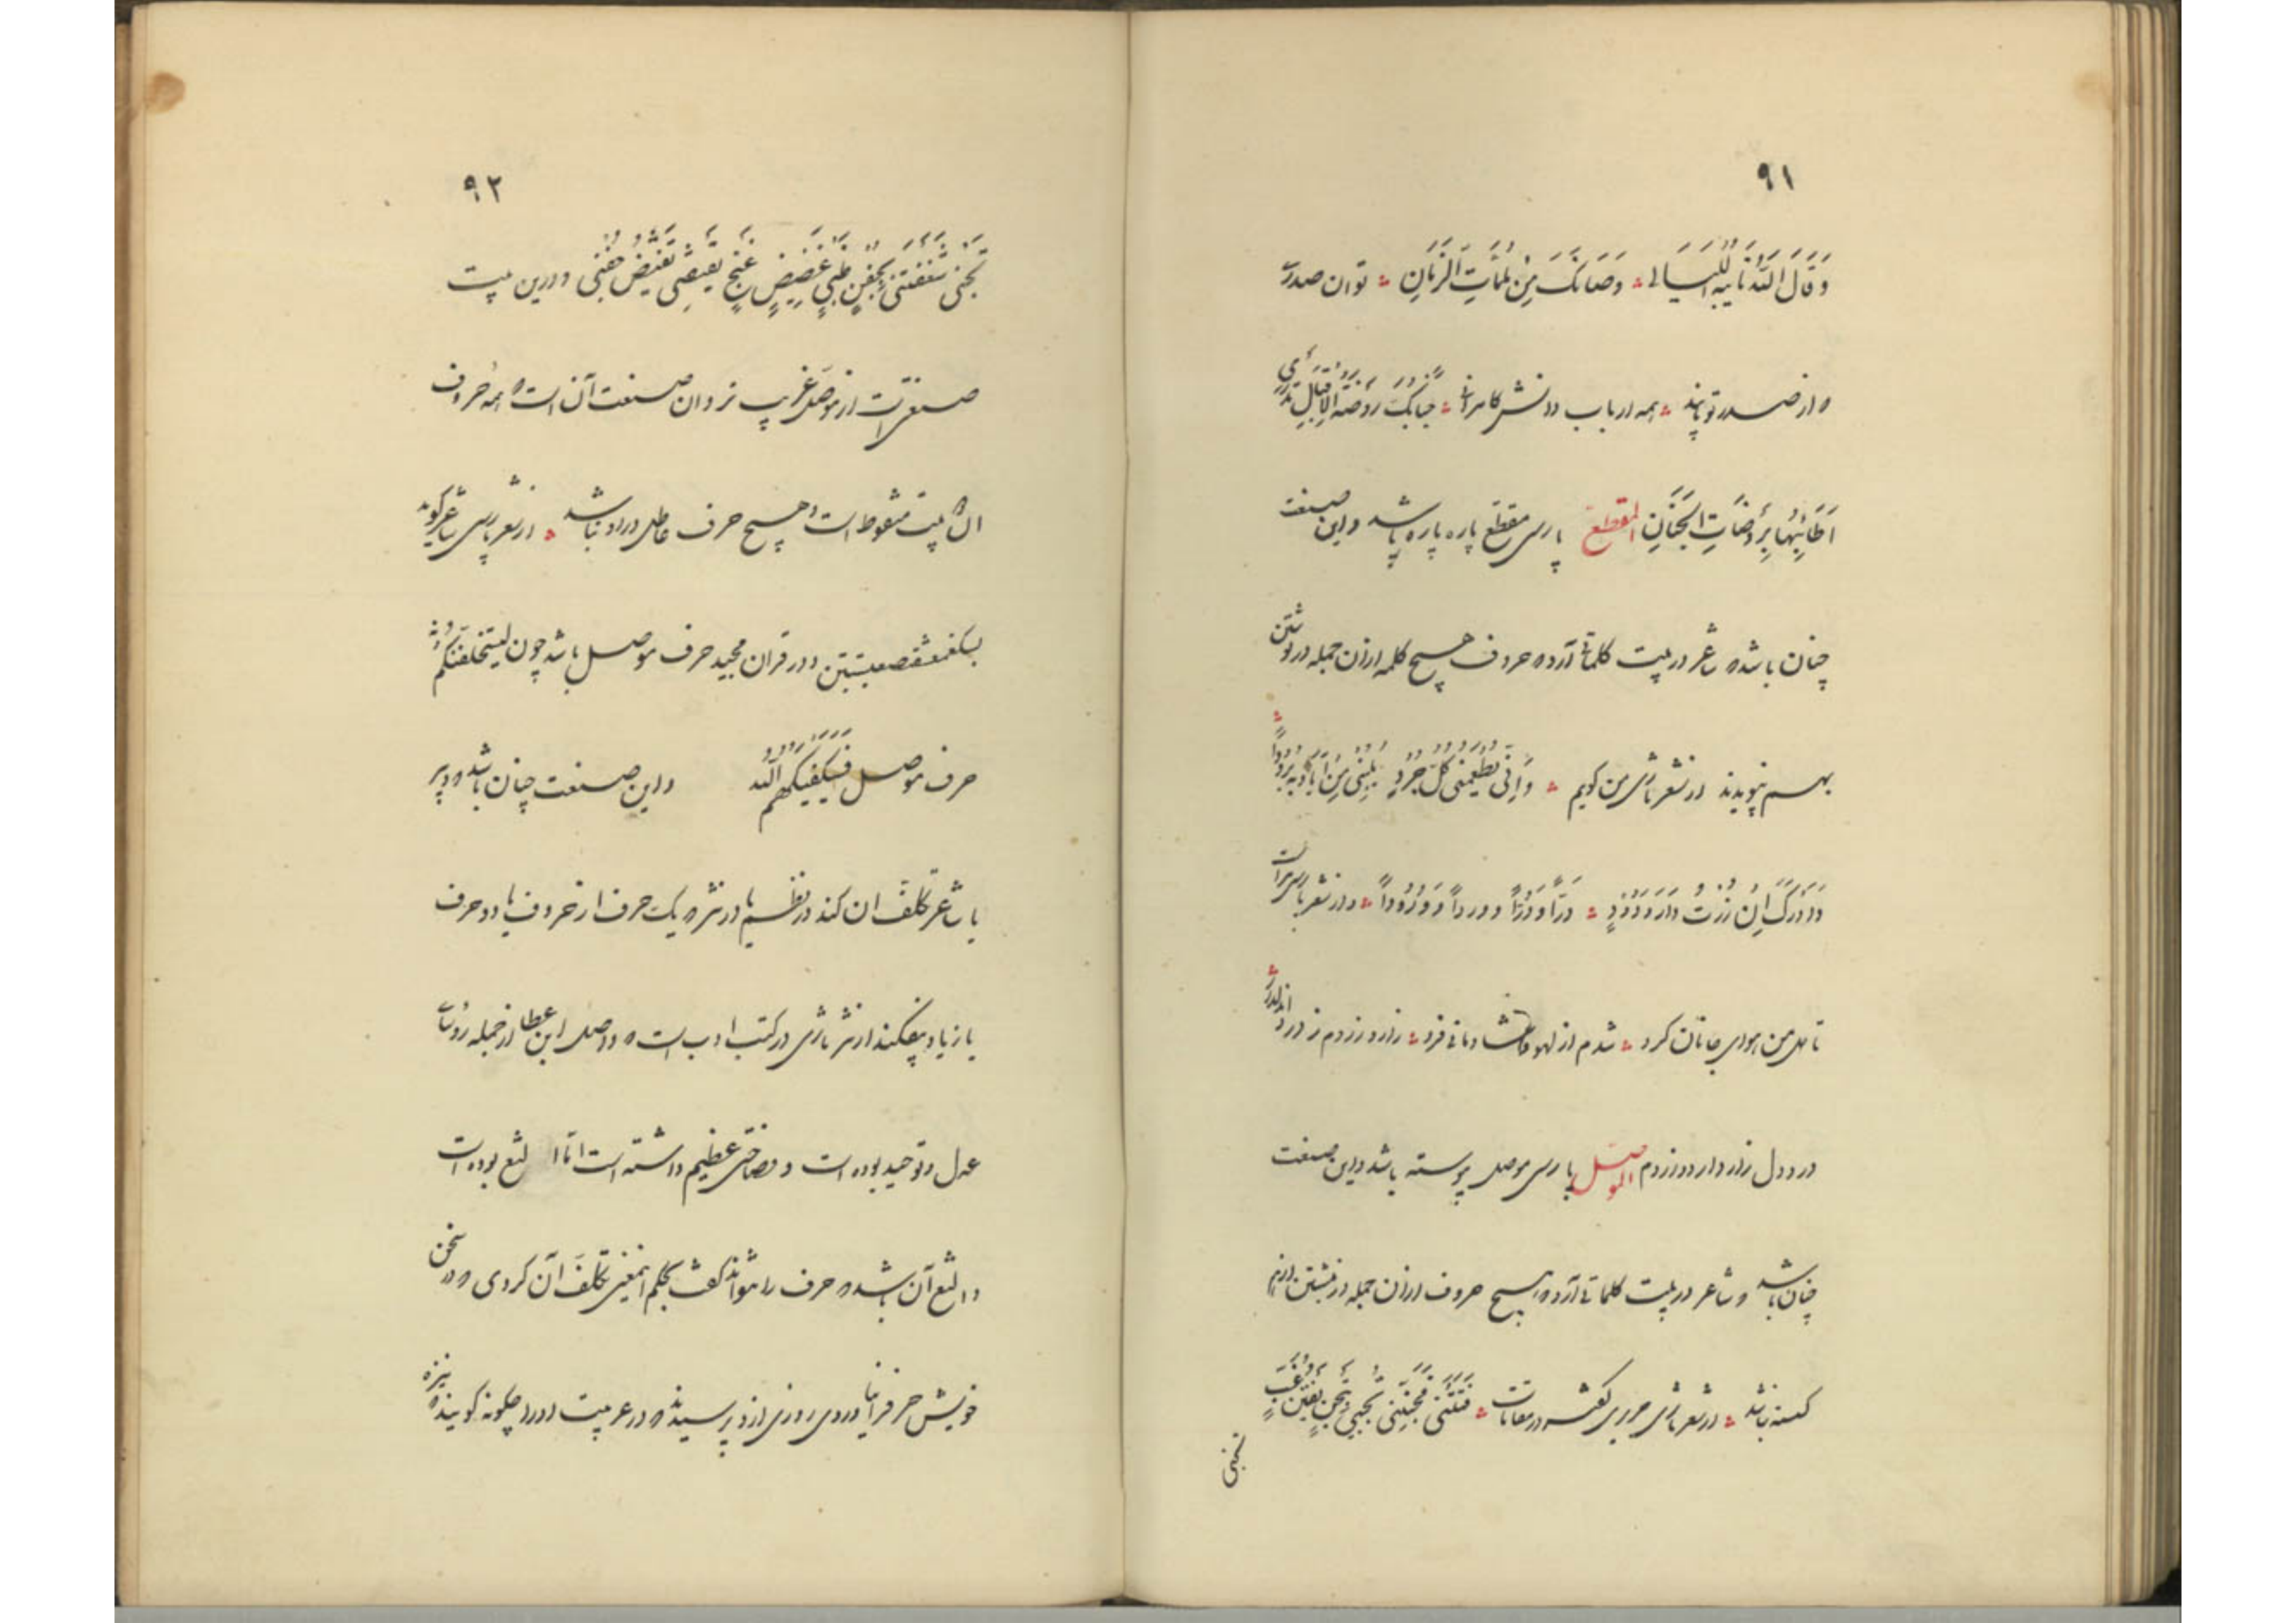 ۹۱
وَقَاكَ اللّٰهُ نَایِبَةَ اللَّیَالی وَصَانَکَ مِنْ مُلِمَّاتِ الزَّمَانِ توان صدری
که از صدر تو یابند همه ارباب دانش کامرانی جنابک روضة الاقبال
اَطَائِبُهَا بِرَوْضَاتِ الْجِنَانِ المقطع پارسی مقطع پاره پاره باشد و این صنعت
چنان باشد که شاعر در بیت کلماتی آرد که حروف هیچ کلمه از آن جمله در نوشتن
بهم نپیوندد از شعر تازی من گویم وَاِنّی
وَ دَارَکَ اِنْ زُرْتُ دَارَ وَدُوْدٍ دُرّاً وَ دُرّاً و ورداً وَ وُرُوداً و از شعر پارسی مراست
تا دل من هوای جانان کرد شدم از لهو شادمانی فرد زار و زردم ز درد
درد دل زار دارد و زردم الموصل پارسی موصل پیوسته باشد و این صنعت
چنان باشد که شاعر در بیت کلماتی آرد که هیچ حروف از آن جمله در نبشتن از هم
کسسته نباشد از شعر تازی حریری گفته در مقامات فَتَنَتْنی فَجَنَّنَتْنی تَجَنّی بِتَجَنٍّ یَفْتَنُّ غِبَّ
تجنی
۹۲
تَجَنّی شَغَفَتْنی بِجَفْنِ ظَبْیٍ غَضِیضٍ غَنِجٍ یَقْتَضِی تَغَیُّضَ جَفْنِی و درین بیت
صنعتی است از موصل غریب تر و آن صنعت آن است که همه حروف
این بیت منقوط است و هیچ حرف عاطل در او نباشد از شعر پارسی شاعر گوید
و در قران مجید حرف موصل باشد چون لیستخلفنکم
حرف موصل فَسَیَکْفِیکَهُمُ اللّٰهُ و این صنعت چنان باشد که دبیر
یا شاعر تکلف آن کند در نظم یا در نثر که یک حرف از حروف یا دو حرف
یا زیاد بیفکند از نثر تازی در کتب ادب است که واصل ابن عطا از جمله رؤسای
عدل و توحید بوده است و فصاحتی عظیم داشته است اما الثغ بوده است
و الثغ آن باشد که حرف را نتواند گفت بحکم این معنی تکلف آن کردی که در سخن
خویش حرف را نیاوردی روزی از او پرسیدند که در عربیت او را چگونه گویند که نیزه